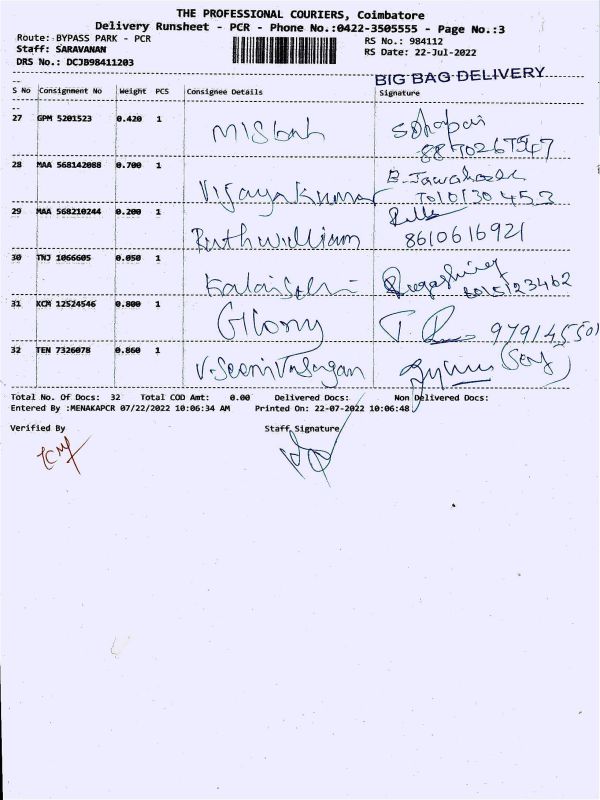 THE PROFESSIONAL COURIERS, Coimbatore
Delivery Runsheet - PCR - Phone No.:0422-3505555 - Page No.:3
Route: BYPASS PARK - PCR
RS No.: 984112
Staff: SARAVANAN
RS Date: 22-Jul-2022
DRS No.: DCJB98411203
BIG BAG DELIVERY
S No Consignment No Weight PCS Consignee Details Signature
27 GPM 5201523 0.420 1 Misbah
28 MAA 568142088 0.700 1 Vijaya Kumar
29 MAA 568210244 0.200 1 Ruth william
8610616921
30 TNJ 1066605 0.050 1 Kalaiselvi
31 KCM 12524546 0.800 1 Glory
32 TEN 7326078 0.860 1
Total No. Of Docs: 32 Total COD Amt: 0.00 Delivered Docs: Non Delivered Docs:
Entered By :MENAKAPCR 07/22/2022 10:06:34 AM Printed On: 22-07-2022 10:06:48
Verified By Staff Signature